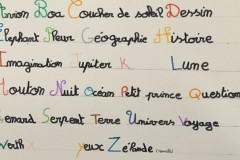 Avion Boa Coucher de soleil Dessin
Éléphant Fleur Géographie Histoire
Imagination Jupiter K Lune
Mouton Nuit Océan Petit prince Question
Renard Serpent Terre Univers Voyage
Werth X yeux Zélande